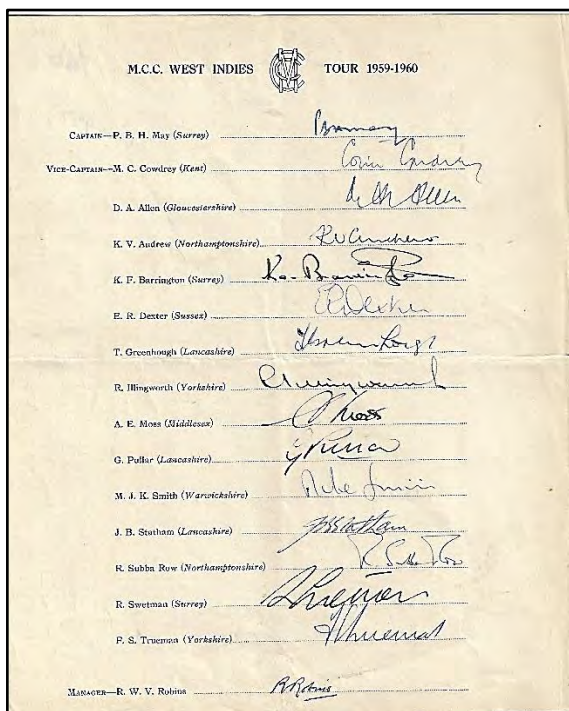 M.C.C. WEST INDIES MCC TOUR 1959-1960
CAPTAIN—P. B. H. May (Surrey) PBHMay
VICE-CAPTAIN—M. C. Cowdrey (Kent) Colin Cowdrey
D. A. Allen (Gloucestershire) Allen
K. V. Andrew (Northamptonshire) KVAndrew
K. F. Barrington (Surrey) Ken Barrington
E. R. Dexter (Sussex) ERDexter
T. Greenhough (Lancashire)
R. Illingworth (Yorkshire) RIllingworth
A. E. Moss (Middlesex) Moss
G. Pullar (Lancashire) GPullar
M. J. K. Smith (Warwickshire) Mike Smith
J. B. Statham (Lancashire) JBStatham
R. Subba Row (Northamptonshire) R Subba Row
R. Swetman (Surrey) RSwetman
F. S. Trueman (Yorkshire) FSTrueman
MANAGER—R. W. V. Robins RRobins